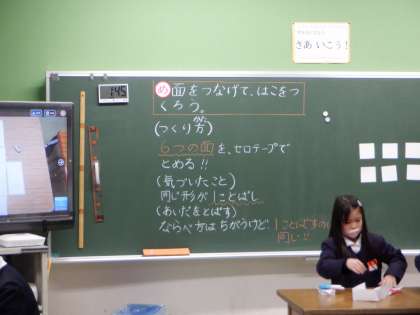 さあ いこう!
1:45
め 面をつなげて、はこをつ
くろう。
(つくり方)
かた
6つの面を、セロテープで
とめる!!
(気づいたこと)
同じ形が1ことばし
(あいだをとばす)
ならべ方はちがうけど、1ことばすのは
同じ!!